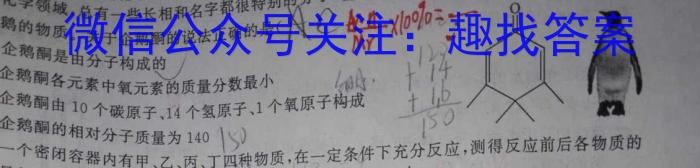 化学领域,总有一些长相和名字都很特别的分
微信公众号关注:趣找答案
×100%=
鹅的物质
企鹅酮是由分子构成的
企鹅酮各元素中氧元素的质量分数最小
企鹅酮由10个碳原子、14个氢原子、1个氧原子构成
企鹅酮的相对分子质量为140
150
120
+ 14
+ 16
150
O
一个密闭容器内有甲、乙、丙、丁四种物质,在一定条件下充分反应,测得反应前后各物质的